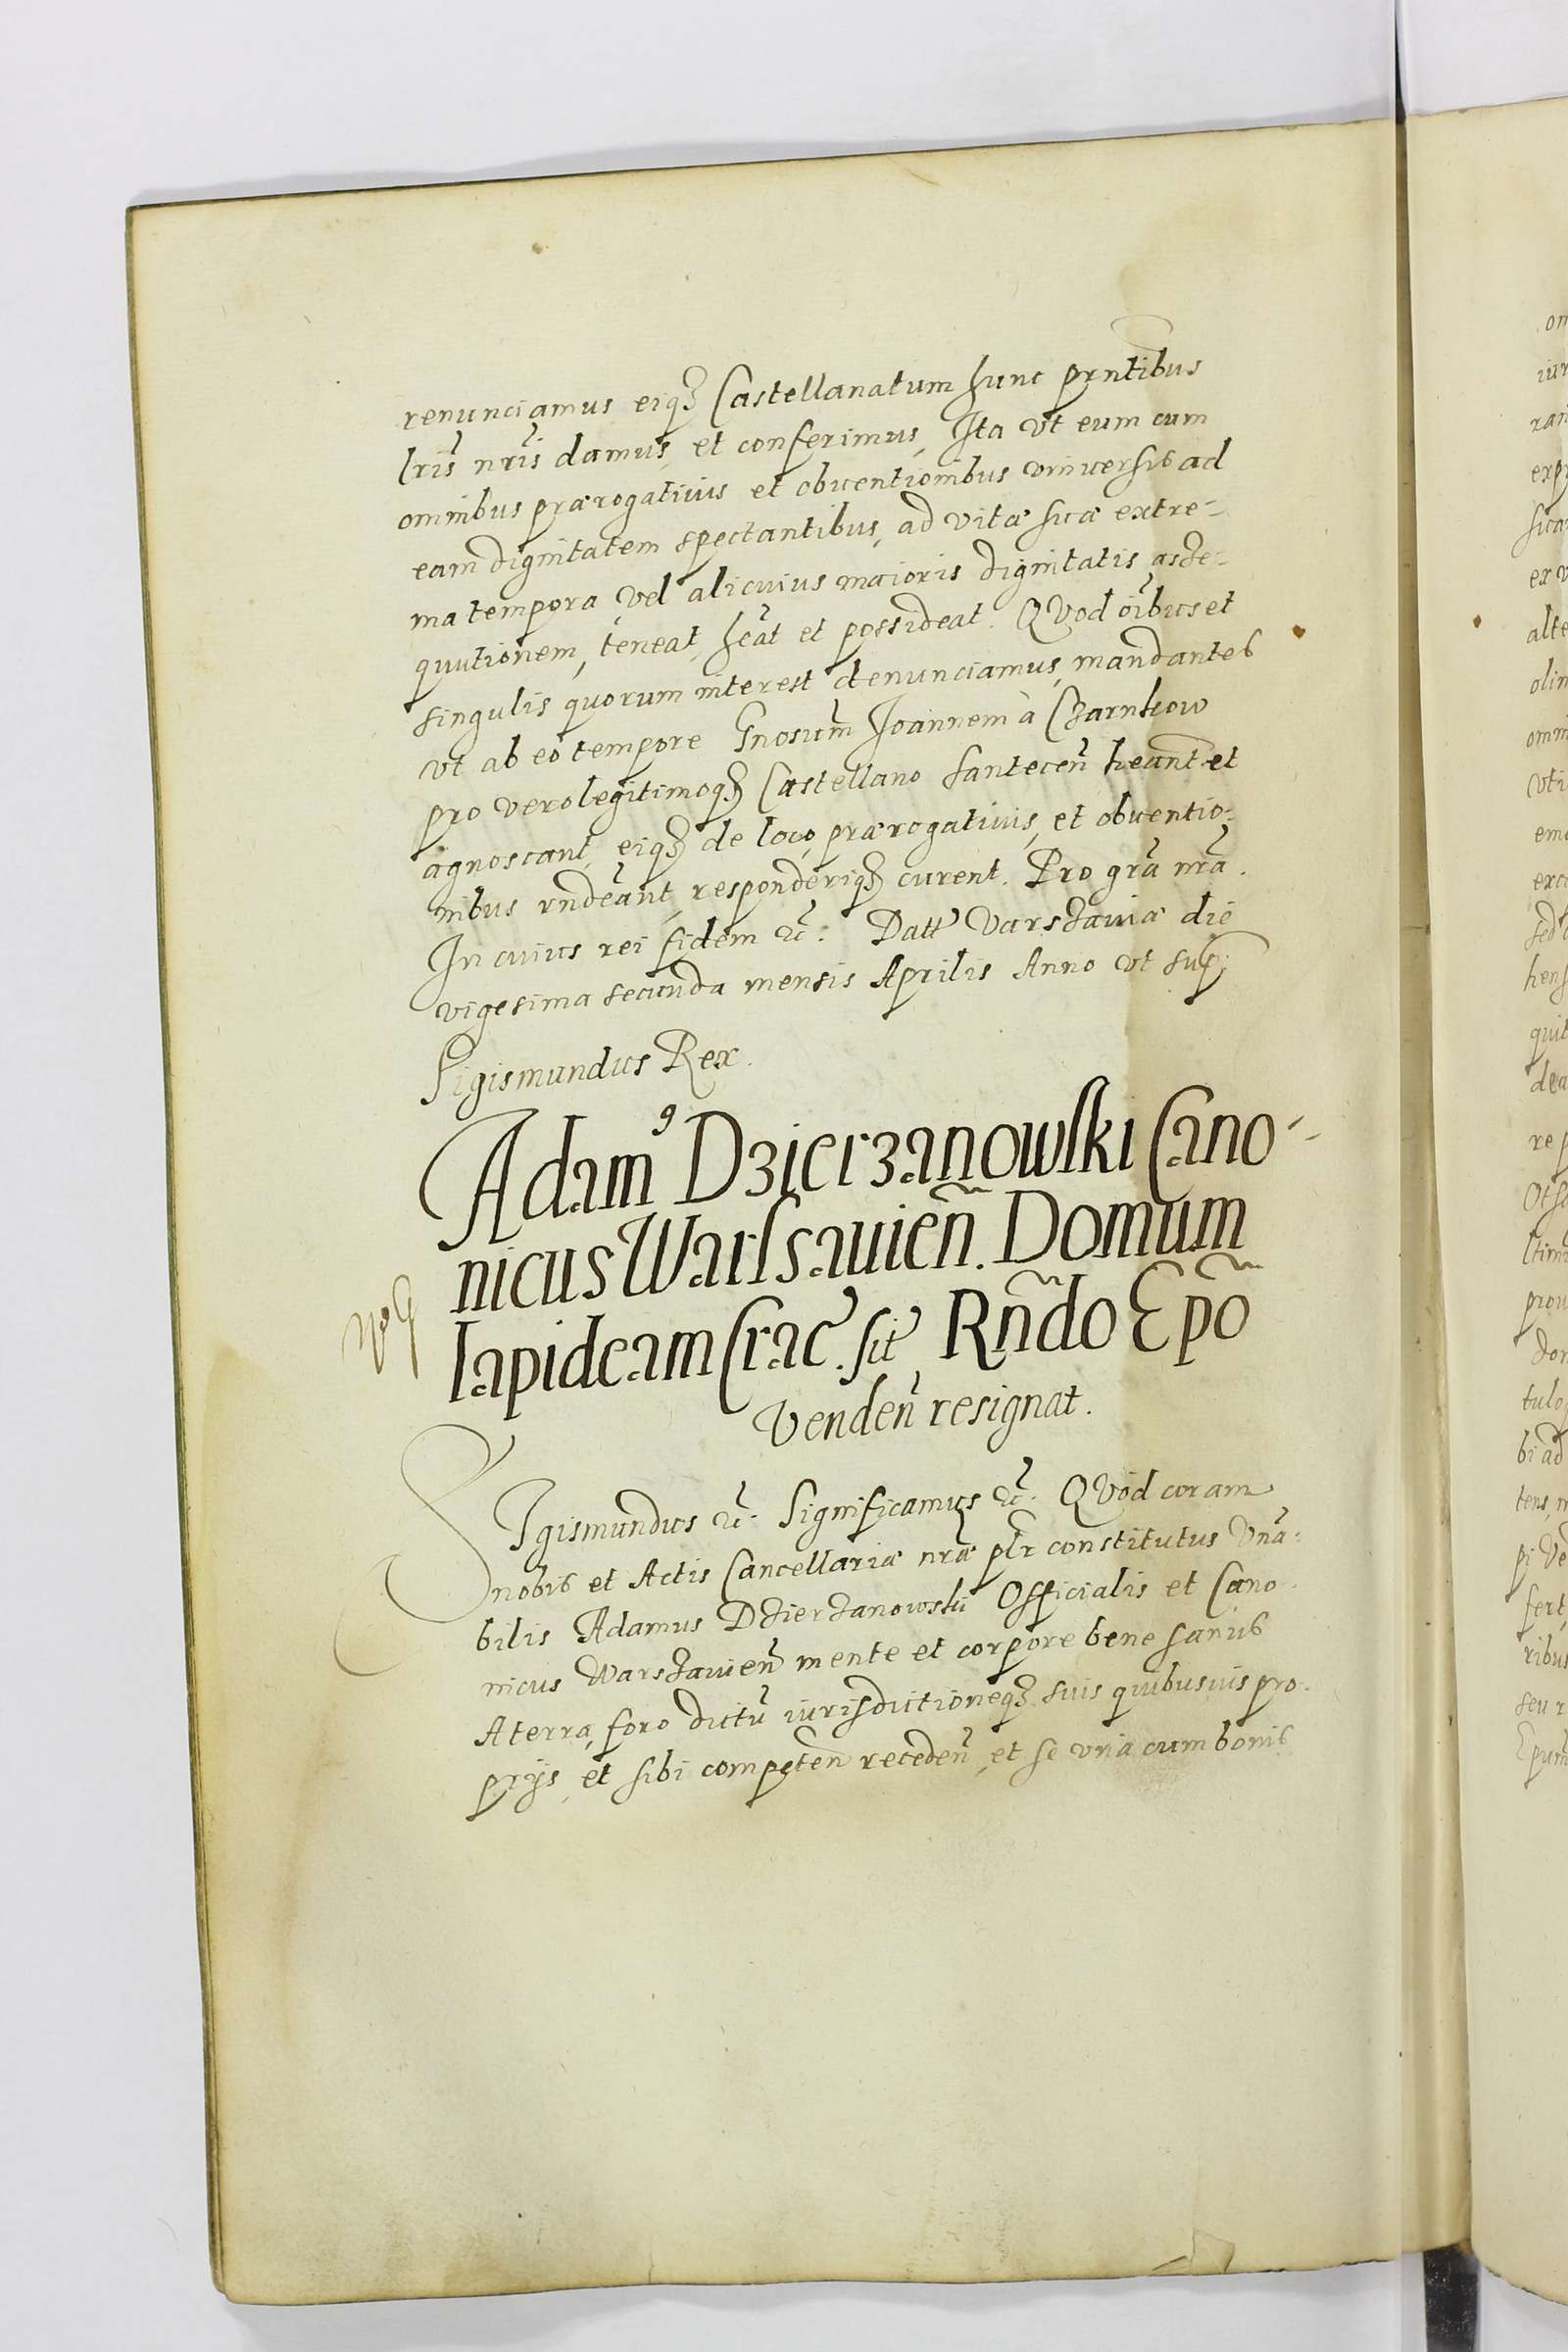 renunciamus eiq₃ Castellanatum hunc prntibus
lris nris damus, et conferimus, Ita vt eum cum
omnibus prærogatiuis et obuentionibus vniuersis ad
eam dignitatem spectantibus, ad vitæ suæ extre-
ma tempora, vel alicuius maioris dignitatis asse-
quutionem, teneat, heat et possideat. QVod oibus et
singulis quorum interest denunciamus, mandantes
vt ab eo tempore Gnosum Joannem à Czarnkow
pro vero legitimoq₃ Castellano Santecen̄ heant et
agnoscant, eiq₃ de loco, prærogatiuis, et obuentio-
nibus rndeant, responderiq₃ curent. Pro gra nra.
In cuius rei fidem &c. Datt Varszauiæ die
vigesima secunda mensis Aprilis Anno vt sup:
Sigismundus Rex.
Adam⁹ Dzierzanowski Cano-
nicus Warssauien̄. Domum
lapideam Crac. sit Rn̄do Ep̄o
Venden̄ resignat.
SIgismundus &c. Significamus &c. QVod coram
nobis et Actis Cancellariæ nræ plr constitutus Vn̄a-
bilis Adamus Dzierzanowski Officialis et Cano-
nicus Warszauien̄ mente et corpore bene sanus
A terra, foro dictu iurisdictioneq₃ suis quibusuis pro-
prijs, et sibi competen̄ receden̄, et se vna cum bonis